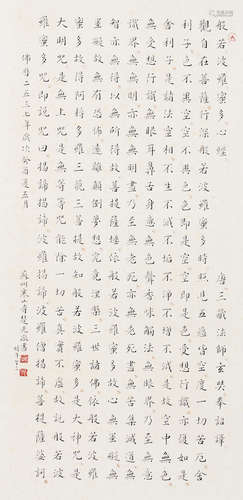 般若波羅蜜多心經 唐三藏法師玄奘奉詔譯
觀自在菩薩行深般若波羅蜜多時照見五蘊皆空度一切苦厄舍
利子色不異空空不異色色即是空空即是色受想行識亦復如是
舍利子是諸法空相不生不滅不垢不淨不增不減是故空中無色
無受想行識無眼耳鼻舌身意無色聲香味觸法無眼界乃至無意
識界無無明亦無無明盡乃至無老死亦無老死盡無苦集滅道無
智亦無得以無所得故菩提薩埵依般若波羅蜜多故心無罣礙無
罣礙故無有恐怖遠離顛倒夢想究竟涅槃三世諸佛依般若波羅
蜜多故得阿耨多羅三藐三菩提故知般若波羅蜜多是大神咒是
大明咒是無上咒是無等等咒能除一切苦真實不虛故說般若波
羅蜜多咒即說咒曰揭諦揭諦波羅揭諦波羅僧揭諦菩提薩婆訶
佛曆二五三七年歲次癸酉夏五月
蘇州寒山寺性空敬書